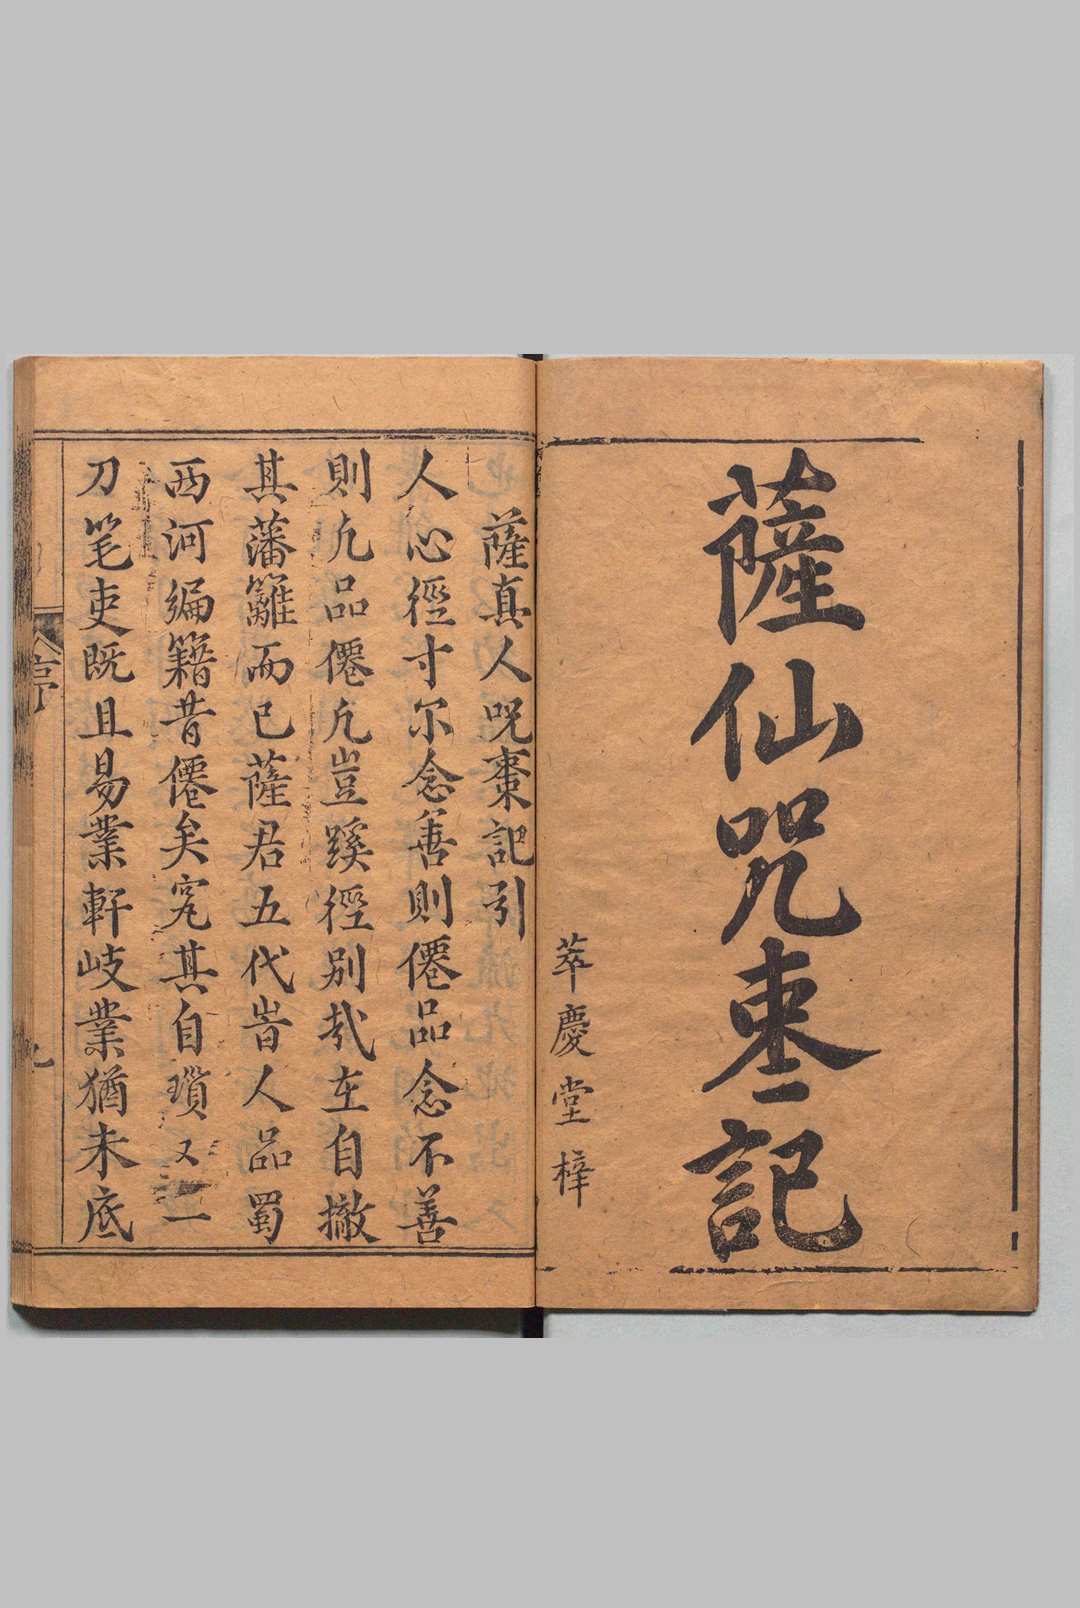 薩仙咒枣記
萃慶堂梓
薩真人咒棗記引
人心徑寸尔念善則僊品念不善
則凢品僊凢豈蹊徑別㢤在自撤
其藩籬而已薩君五代旹人品蜀
西河編籍昔僊矣究其自瓚又一
刀笔吏既且易業軒岐業猶未底